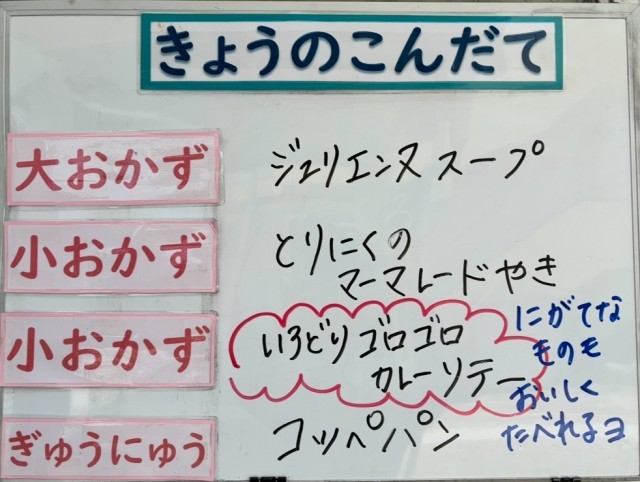 きょうのこんだて
大おかず
ジュリエンヌスープ
小おかず
とりにくの
マーマレードやき
小おかず
いろどりゴロゴロ
カレーソテー
にがてな
ものも
おいしく
たべれるヨ
ぎゅうにゅう
コッペパン